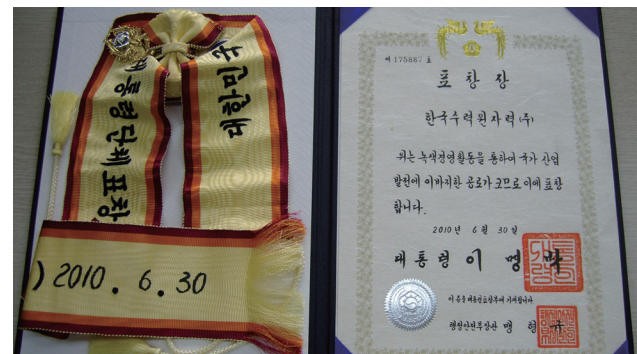 대통령단체표창
대한민국
) 2010. 6. 30
제 175887 호
표창장
한국수력원자력(주)
위는 녹색경영활동을 통하여 국가 산업
발전에 이바지한 공로가 크므로 이에 표창
합니다.
2010년 6월 30일
대통령 이명박
이 증을 대통령표창부에 기재합니다
행정안전부장관 맹형규